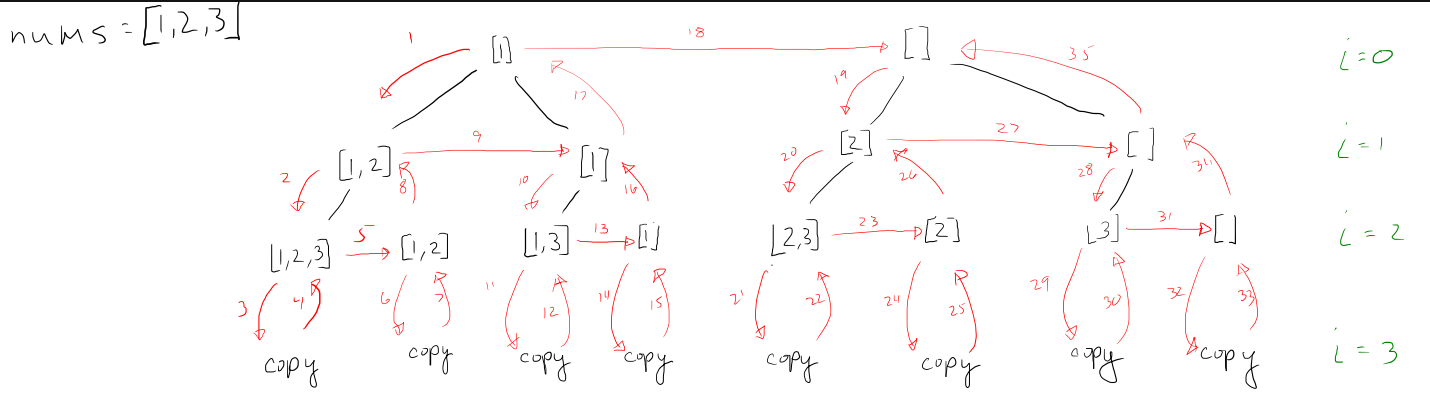 nums = [1,2,3]
1
[1]
18
[ ]
35
i=0
17
19
2
[1,2]
8
9
10
[1]
16
20
[2]
26
27
28
[ ]
34
i = 1
[1,2,3]
5
[1,2]
[1,3]
13
[1]
[2,3]
23
[2]
[3]
31
[ ]
i = 2
3
4
6
7
11
12
14
15
21
22
24
25
29
30
32
33
copy
copy
copy
copy
copy
copy
copy
copy
i = 3